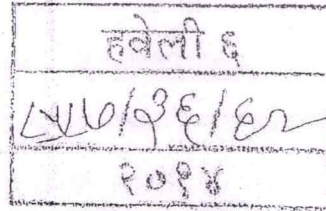 हवेली ६
/३६/६२
२०१४